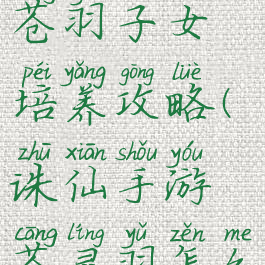 苍羽子女
péi yǎng gōng lüè
培养攻略(
zhū xiān shǒu yóu
诛仙手游
cāng líng yǔ zěn me
苍灵羽怎么